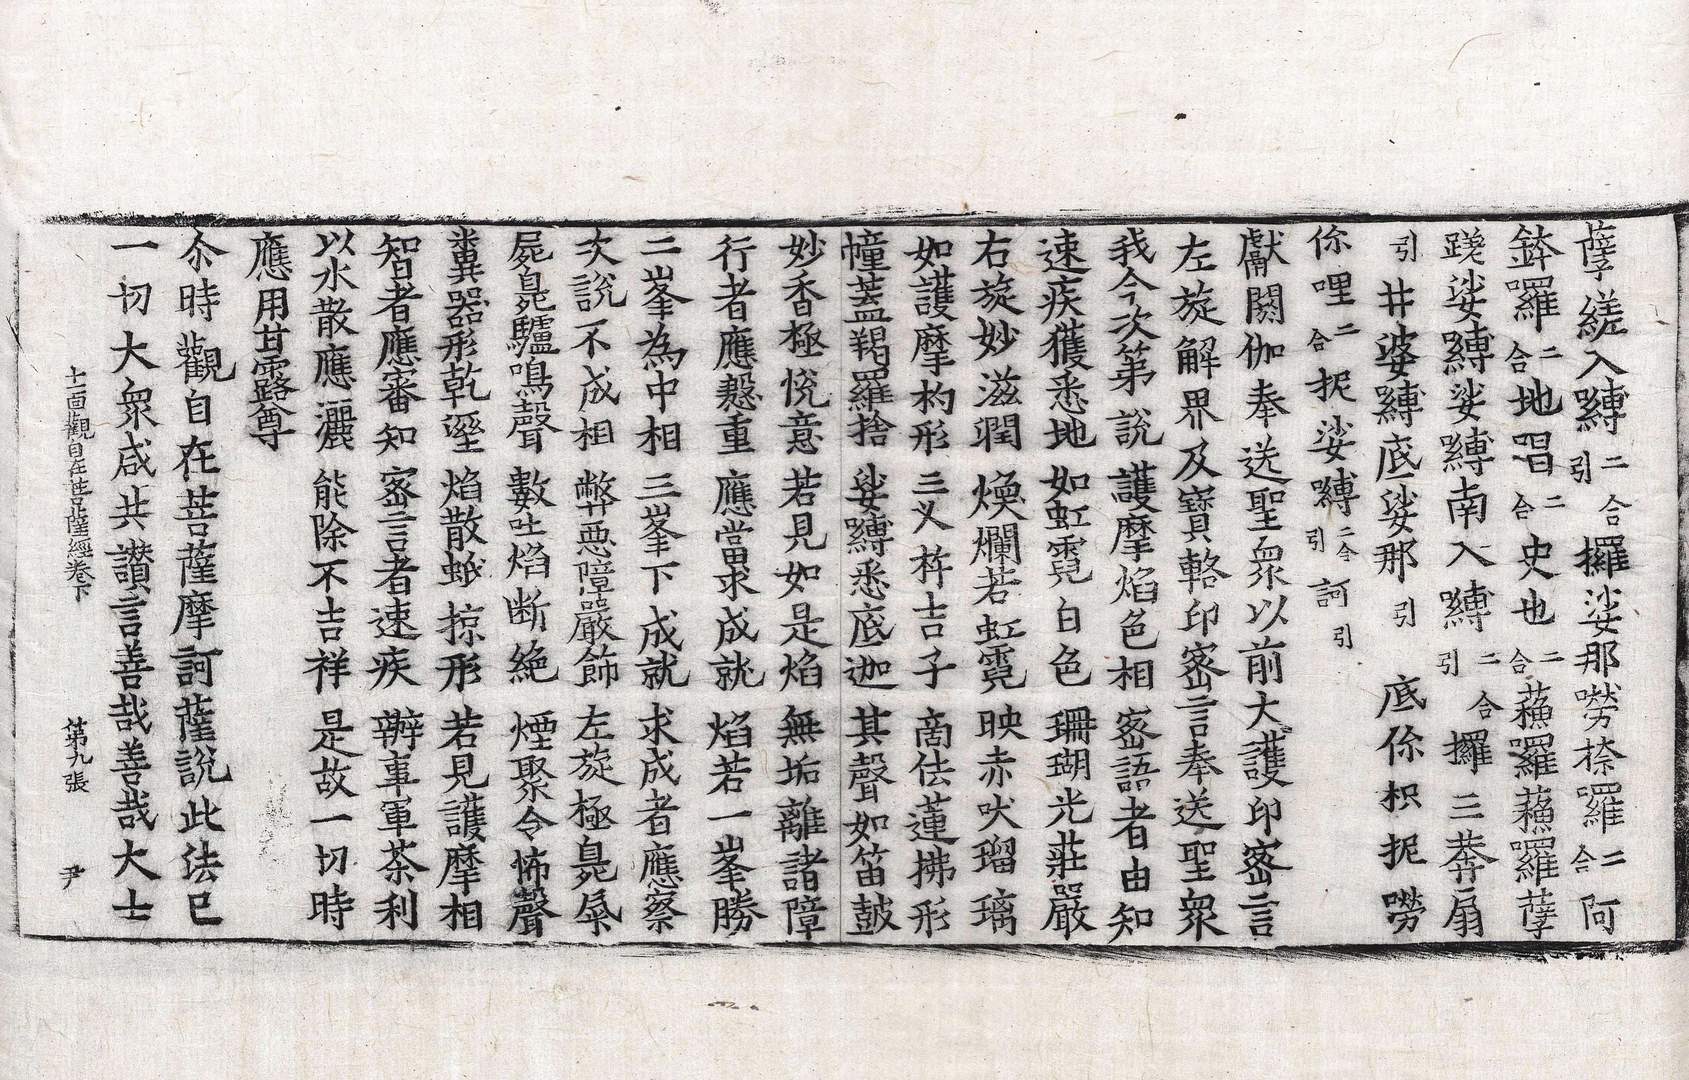 孽縒入嚩二合引攞娑那嘮捺囉二合阿
鉢囉二合地唱二合史也二合蘓囉蘓囉孽
踐娑嚩娑嚩南入嚩二合引攞三莾扇
引井婆嚩底娑那引底你枳抳嘮
你哩二合抳娑嚩二合引訶引
獻閼伽奉送聖衆以前大護印密言
左旋解界及寶輅印密言奉送聖衆
我今次第說護摩焰色相密語者由知
速疾獲悉地如虹霓白色珊瑚光莊嚴
右旋妙滋潤煥爛若虹霓映赤吠瑠璃
如護摩杓形三叉杵吉子商佉蓮拂形
幢蓋羯羅捨娑嚩悉底迦其聲如笛鼓
妙香極悅意若見如是焰無垢離諸障
行者應慇重應當求成就焰若一峯勝
二峯為中相三峯下成就求成者應察
次說不成相弊惡障嚴飾左旋極臭氣
屍臭驢鳴聲數吐焰断絶煙聚令怖聲
糞器形乾溼焰散蛾掠形若見護摩相
知者應審知密言者速疾辦事軍荼利
以水散應灑能除不吉祥是故一切時
應用甘露尊
尒時觀自在菩薩摩訶薩說此法已
一切大衆咸共讚言善哉善哉大士
十一面觀自在菩薩經卷下　第九張　尹